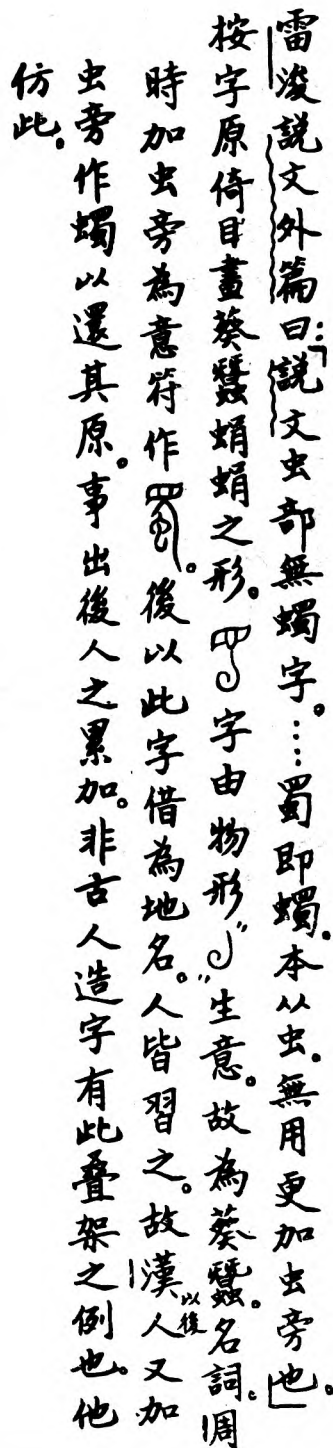 雷浚說文外篇曰：「說文虫部無蠋字。……蜀即蠋。本从虫。無用更加虫旁也。」
按字原倚目畫葵蠶蜎蜎之形。字由物形生意。故為葵蠶。名詞。周
時加虫旁為意符作。後以此字借為地名。人皆習之。故漢以後人又加
虫旁作蠋以還其原。事出後人之累加。非古人造字有此疊架之例也。他
仿此。